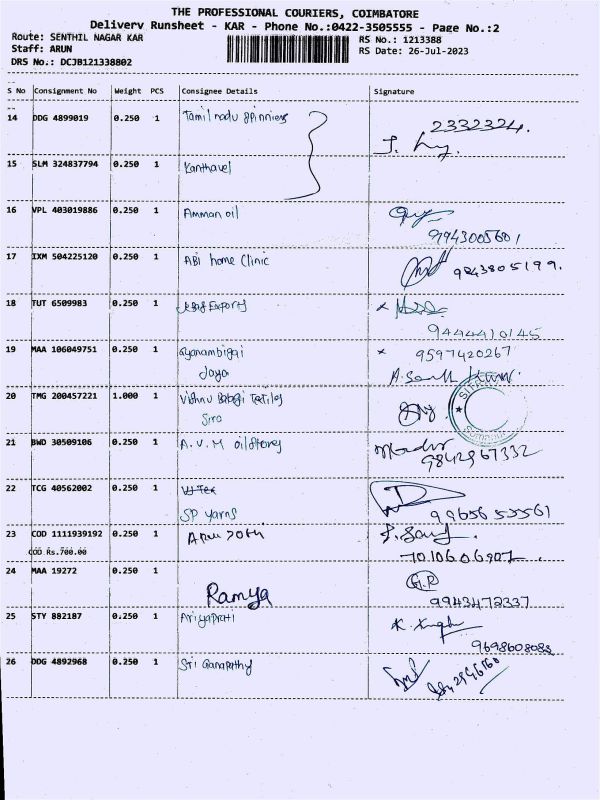 THE PROFESSIONAL COURIERS, COIMBATORE
Delivery Runsheet - KAR - Phone No.:0422-3505555 - Page No.:2
Route: SENTHIL NAGAR KAR
RS No.: 1213388
Staff: ARUN
RS Date: 26-Jul-2023
DRS No.: DCJB121338802
S No Consignment No Weight PCS Consignee Details Signature
14 DDG 4899019 0.250 1 Tamil nadu spinners
2332324.
15 SLM 324837794 0.250 1 Kanthavel
16 VPL 403019886 0.250 1 Amman oil
91943005601
17 IXM 504225120 0.250 1 ABi home Clinic 9843805199.
18 TUT 6509983 0.250 1 Exports
9444410145
19 MAA 106049751 0.250 1 Gyanambigai 9597420267
Jaya
20 TMG 200457221 1.000 1 Vishnu Balaji
Siro
21 BWD 30509106 0.250 1 A.V.M oilstores
9842967332
22 TCG 40562002 0.250 1
SP yarns 99656 53561
23 COD 1111939192 0.250 1
COD Rs.700.00 7010606907
24 MAA 19272 0.250 1 G.R
Ramya 9943472337
25 STY 882187 0.250 1
9698608088
26 DDG 4892968 0.250 1 Sri Ganapathy